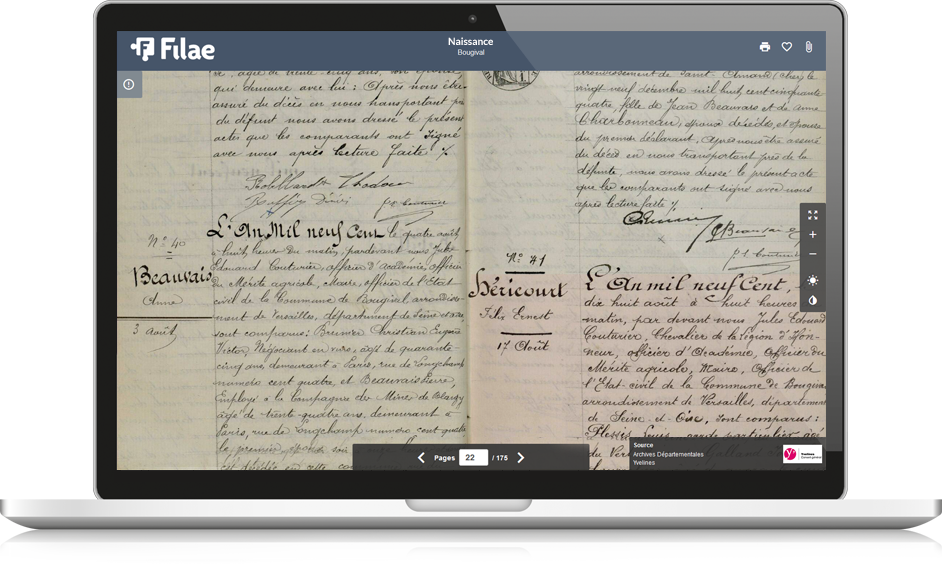 Filae
Naissance
Bougival
qui demeure avec lui : Après nous être
assuré du décès en nous transportant près
du défunt nous avons dressé le présent
acte que les comparants ont signé
avec nous après lecture faite ./.
L'An Mil neuf Cent le quatre août
à huit heures du matin, pardevant nous Jules
Edouard Couturier, officier d'académie, officier
du Mérite agricole, Maire, officier de l'Etat
civil de la Commune de Bougival, arrondisse-
ment de Versailles, département de Seine et Oise,
sont comparus : Christian Eugène
Victor, Négociant en vins, âgé de quarante-
cinq ans demeurant à Paris, rue de Longchamp
numéro cent quatre et Beauvais Pierre,
Employé à la Compagnie des Mines de Blanzy
âgé de trente quatre ans, demeurant à
Paris, rue de Longchamp numéro cent quatre
le premier
N° 40
Beauvais
Anne
3 août
arrondissement de Saint-Amand (Cher), le
vingt neuf décembre mil huit cent cinquante
quatre, fille de Jean Beauvais et de Anne
Charbonneau, époux décédés, et épouse
du premier déclarant, Après nous être assuré
du décès en nous transportant près de la
défunte, nous avons dressé le présent acte
que les comparants ont signé avec nous
après lecture faite ./.
N° 41
Héricourt
Ernest
17 Août
L'An mil neuf Cent,
dix huit août à huit heures
matin, par devant nous Jules Edouard
Couturier, Chevalier de la Légion d'Hon-
neur, officier d'Académie, Officier du
Mérite agricole, Maire, Officier de
l'Etat-civil de la Commune de Bougival
arrondissement de Versailles, département
de Seine-et-Oise, sont comparus :
Louis, garde particulier, âgé
Pages 22 / 175
Source
Archives Départementales
Yvelines